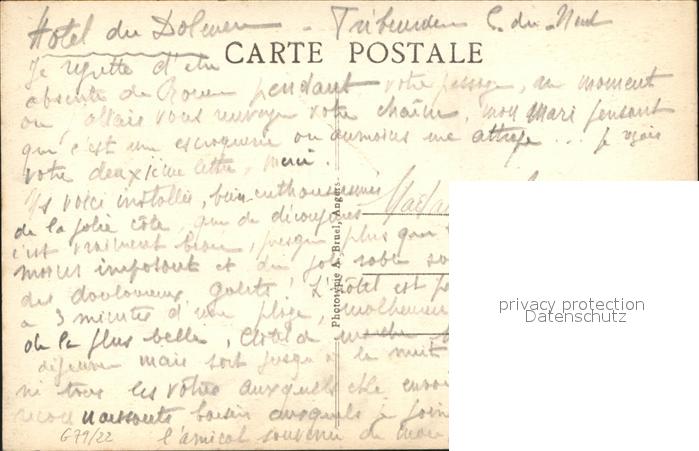 Hotel du Dolmen - Trébeurden C. du Nord
CARTE POSTALE
Je regrette d'être
absente de Rouen pendant votre passage, au moment
ou, allais vous renvoyer votre chaîne, mon Mari pensant
que c'est une escroquerie ou au moins une attrape ... je reçois
votre deuxième lettre, merci.
Ns voici installés, bien enthousiasmés
de la jolie côte, que ns découvrons
c'est vraiment beau, presque plus que
moins imposant et du joli sable
des douloureux galets! L'hôtel est
à 3 minutes d'une plage, malheureusement
de la plus belle, Clotilde
déjeuner mais sort jusqu'à la nuit
ni tous les vôtres auxquels elle
reconnaissants baisers auxquels je
l'amical souvenir de mon
Photosypie A. Bruel, Angers.
G79/22
privacy protection
Datenschutz